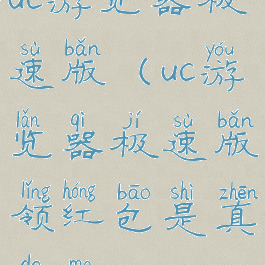 uc游览器极
sù bǎn yóu
速版(uc游
lǎn qì jí sù bǎn
览器极速版
lǐng hóng bāo shì zhēn
领红包是真
de ma